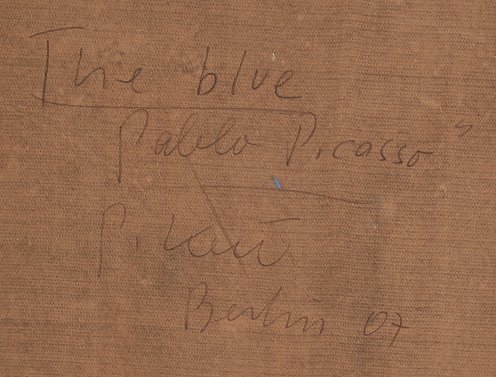 The blue
Pablo Picasso"
P.
Berlin 07